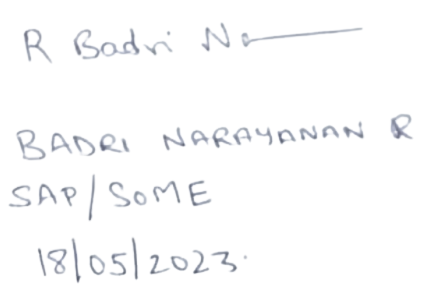 R Badri N
BADRI NARAYANAN R
SAP/SOME
18/05/2023.